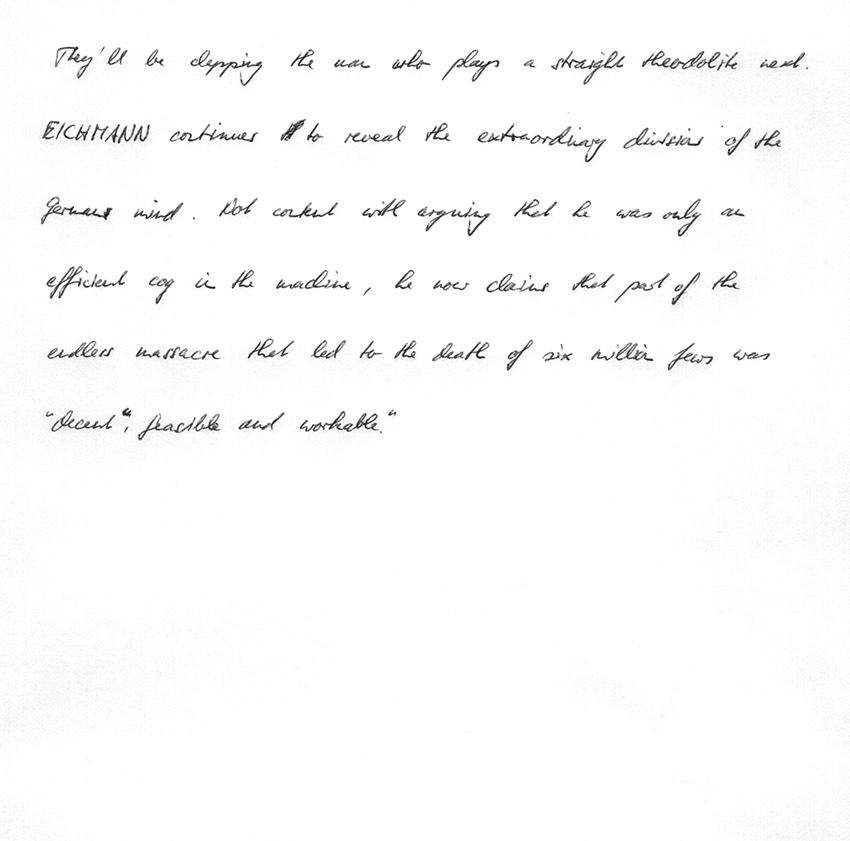 They'll be clapping the man who plays a straight theodolite next.
EICHMANN continues to reveal the extraordinary divisions of the
German mind. Not content with arguing that he was only an
efficient cog in the machine, he now claims that part of the
endless massacre that led to the death of six million Jews was
"decent", feasible and workable."